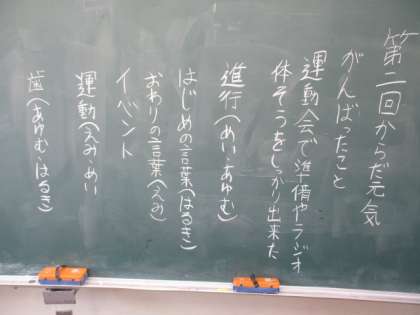 第二回からだ元気
がんばったこと
運動会で準備やラジオ
体そうをしっかり出来た
進行(めい・あゆむ)
はじめの言葉(はるき)
おわりの言葉(えみ)
イベント
運動(えみ・めい)
歯(あゆむ・はるき)